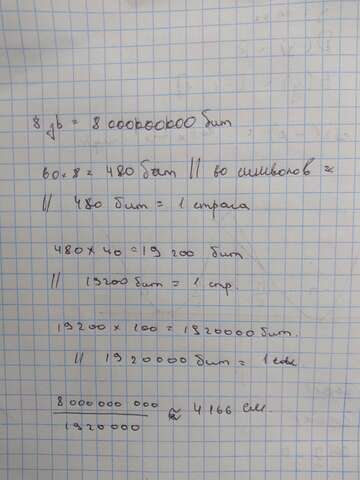 8 gb = 8 000000000 бит
60 × 8 = 480 бит // 60 символов ≈
// 480 бит = 1 строка
480 × 40 = 19 200 бит.
// 19200 бит = 1 стр.
19200 × 100 = 1920000 бит.
// 1920000 бит = 1 см
8 000 000 000
1920000
≈ 4166 см.